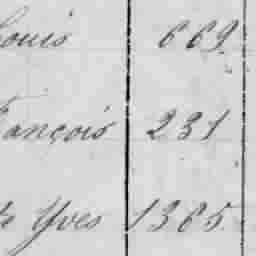 Louis 669.
François 231
Yves 1365.